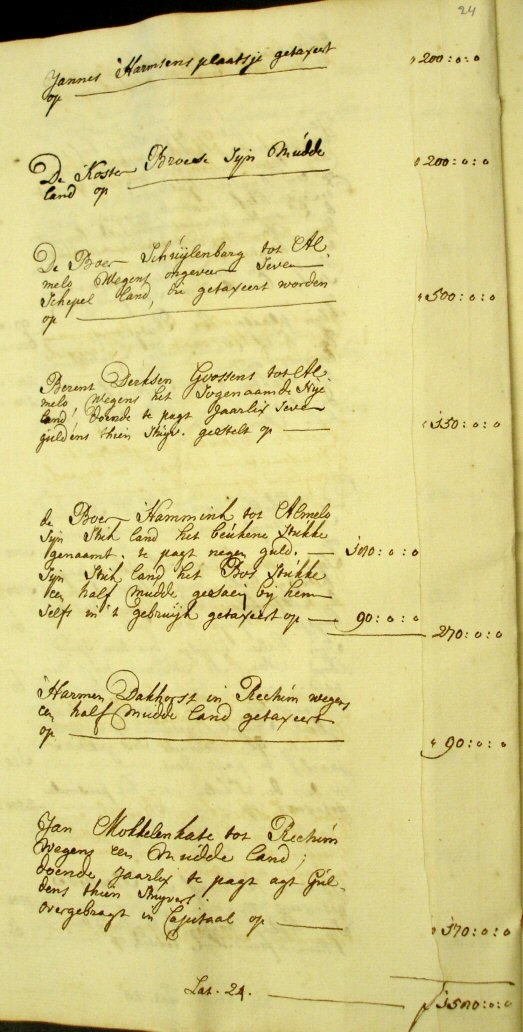 24
Jannes Harmsens plaatsje getaxeert
op 200:0:0
De Koster Broese Sijn Mudde
land op 200:0:0
De Boer Schuijlenburg tot Al-
melo Wegens ongeveer Seven
Schepel land, die getaxeert worden
op 500:0:0
Berent Derksen Goossens tot Al
melo Wegens het Sogenaamde Nije
land! doende te pagt Jaarlix Seven
guldens thien Stuyv. gestelt op 150:0:0
de Boer Hammink tot Almelo
Sijn Stuk land het beukene Stukke
genaamt. te pagt negen guld. 180:0:0
Sijn Stuk land het Bos Stukke
een half Mudde gesaeij bij hem
Selfs in't gebruijk getaxeert op 90:0:0
270:0:0
Harmen Dakhorst in Rechum wegens
een half Mudde land getaxeert
op 90:0:0
Jan Mokkelenkate tot Rechum
Wegens een Mudde land;
doende Jaarlix te pagt agt Gul-
dens thien Stuyvers
overgebragt in Capitaal op 170:0:0
Lat. 24. f 1580:0:0